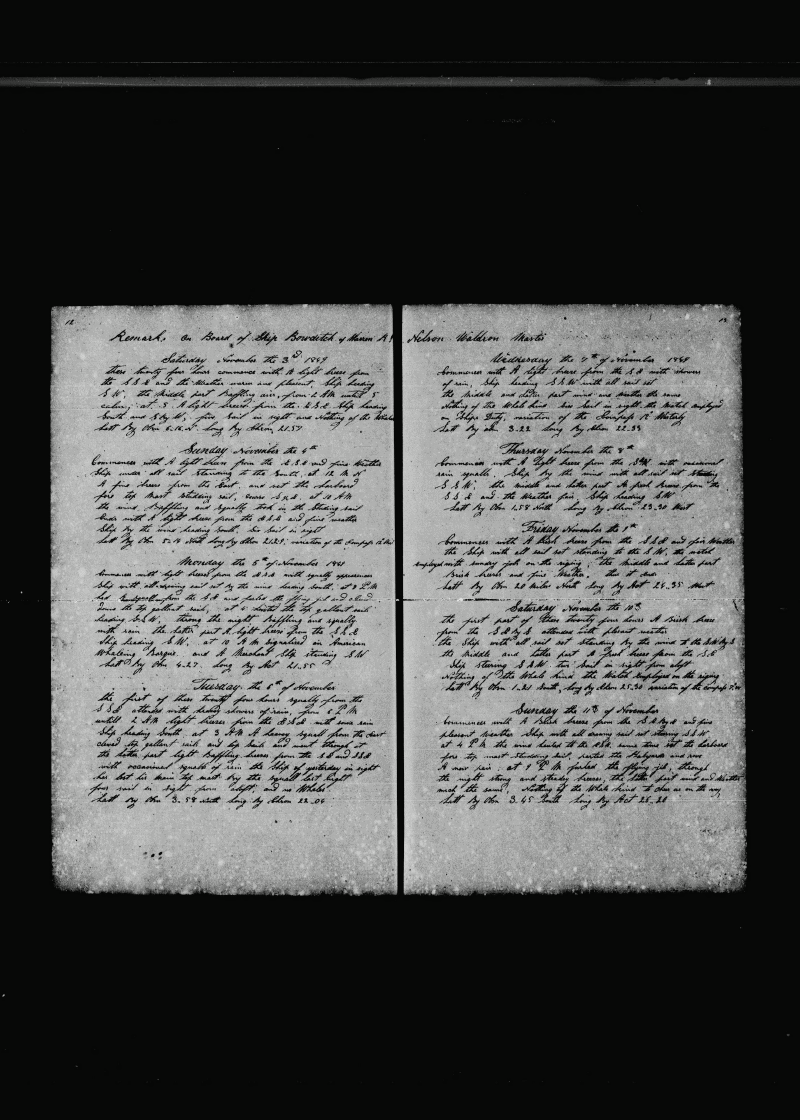 12
Remarks On Board of Ship Bowditch of Warren R.I
Saturday November the 3rd 1849
these twenty four hours commence with A light breese from
the S.S.E and the Weather warm and plesent, Ship heading
S.W, the Middle part Baffling airs, from 2 AM untill 5
calm, at 5 A light breese from the E.S.E Ship heading
South and S By W, five Sail in sight and Nothing of the Whale
Latt By Obn 6.16 N Long By Chron 21.57
Sunday November the 4th
Commences with A light breese from the and fine Weather
Ship under all sail Standing to the South, at 12 M N
A fine breese from the East and set the larboard
fore top Mast Studding sail, at 10 AM
the wind Baffling and squally took in the Studing sail
Ends with A light breese from the and fine weather
Ship By the wind heading South. Six Sail in sight
Latt By Obn 5.14 North Long By Chron 21.29, variation of the Compass 12 W
Monday the 5th of November 1849
Commences with light breese from the with squally apperences
Ship with all drawing sail set By the wind heading South, at 3 P.M
had from the S.E and furled the flying jib and clued
down the top gallant sails, at 5 hoisted the top gallant sails
heading S.S.W, throug the night Baffling and squally
with rain the latter part A light breese from the S.E.E
Ship heading S.W, at 10 AM signalized an American
Whaleing Barque, and A Merchant Ship standing S.W
Latt By Obn 4.27 Long By Act 21.55
Tuesday the 6th of November
the first of these twenty four hours squally from the
S.S.E attended with heavy showers of rain, from 5 P.M
untill 2 AM light breese from the with some rain
Ship heading South at 3 AM A heavy squall from the East
clued top gallant sails and top sails and went through it
the latter part light Baffling breese from the S.E and S.S.E
with occasional squalls of rain the Ship of yesterday in sight
has lost his main top mast By the squall last Night
four sail in sight from aloft, and no Whales
Latt By Obn 3.58 north Long By Chron 22.04
12
Nelson Waldron Master
Wednesday the 7th of November 1849
Commences with A light breese from the S.E with showers
of rain, Ship heading S.S.W with all sail set
the Middle and latter part wind and weather the same
Nothing of the Whale kind. two Sail in sight, the Watch employed
on Ships Duty, variation of the Compass 12 Westerly
Latt By Obn 3.22 Long By Chron 22.33
Thursday November the 8th
Commences with A light breese from the with occasional
rain squalls, Ship By the wind with all sail set
S.S.W, the Middle and latter part A fresh breese from the
S.S.E and the Weather fine, Ship heading S.W
Latt By Obn 1.58 North Long By Chron 23.30 West
Friday November the 9th
Commences with A Brisk breese from the S.S.E and fine Weather
the Ship with all sail set standing to the S.W, the watch
employed with sundry jobs on the riging, the Middle and latter part
Brisk breese and fine Weather, this it Ends
Latt By Obn 20 Miles North Long By Act 24.35 West
Saturday November the 10th
the first part of these twenty four hours A Brisk breese
from the S.E By E attended with plesent weather
the Ship with all sail set standing By the wind to the S.W By S
the Middle and latter part A fresh breese from the S.E
Ship steering S.S.W. two Sail in sight from aloft
Nothing of the Whale kind the Watch employed on the riging
Latt By Obn 1.21 South, Long By Chron 25.30 variation of the Compass
Sunday the 11th of November
Commences with A Brisk breese from the S.E By E and fine
pleasent Weather Ship with all drawing sail set steering S.S.W
at 4 P.M the wind hauled to the ESE, same time set the larboard
fore top mast Studding sail, parted the Halyards and rove
A new pair. at 7 P.M furled the flying jib, through
the night strong and steady breese, the latter part wind and Weather
much the same, Nothing of the Whale kind to chear us on the way
Latt By Obn 3.45 South Long By Act 25.20